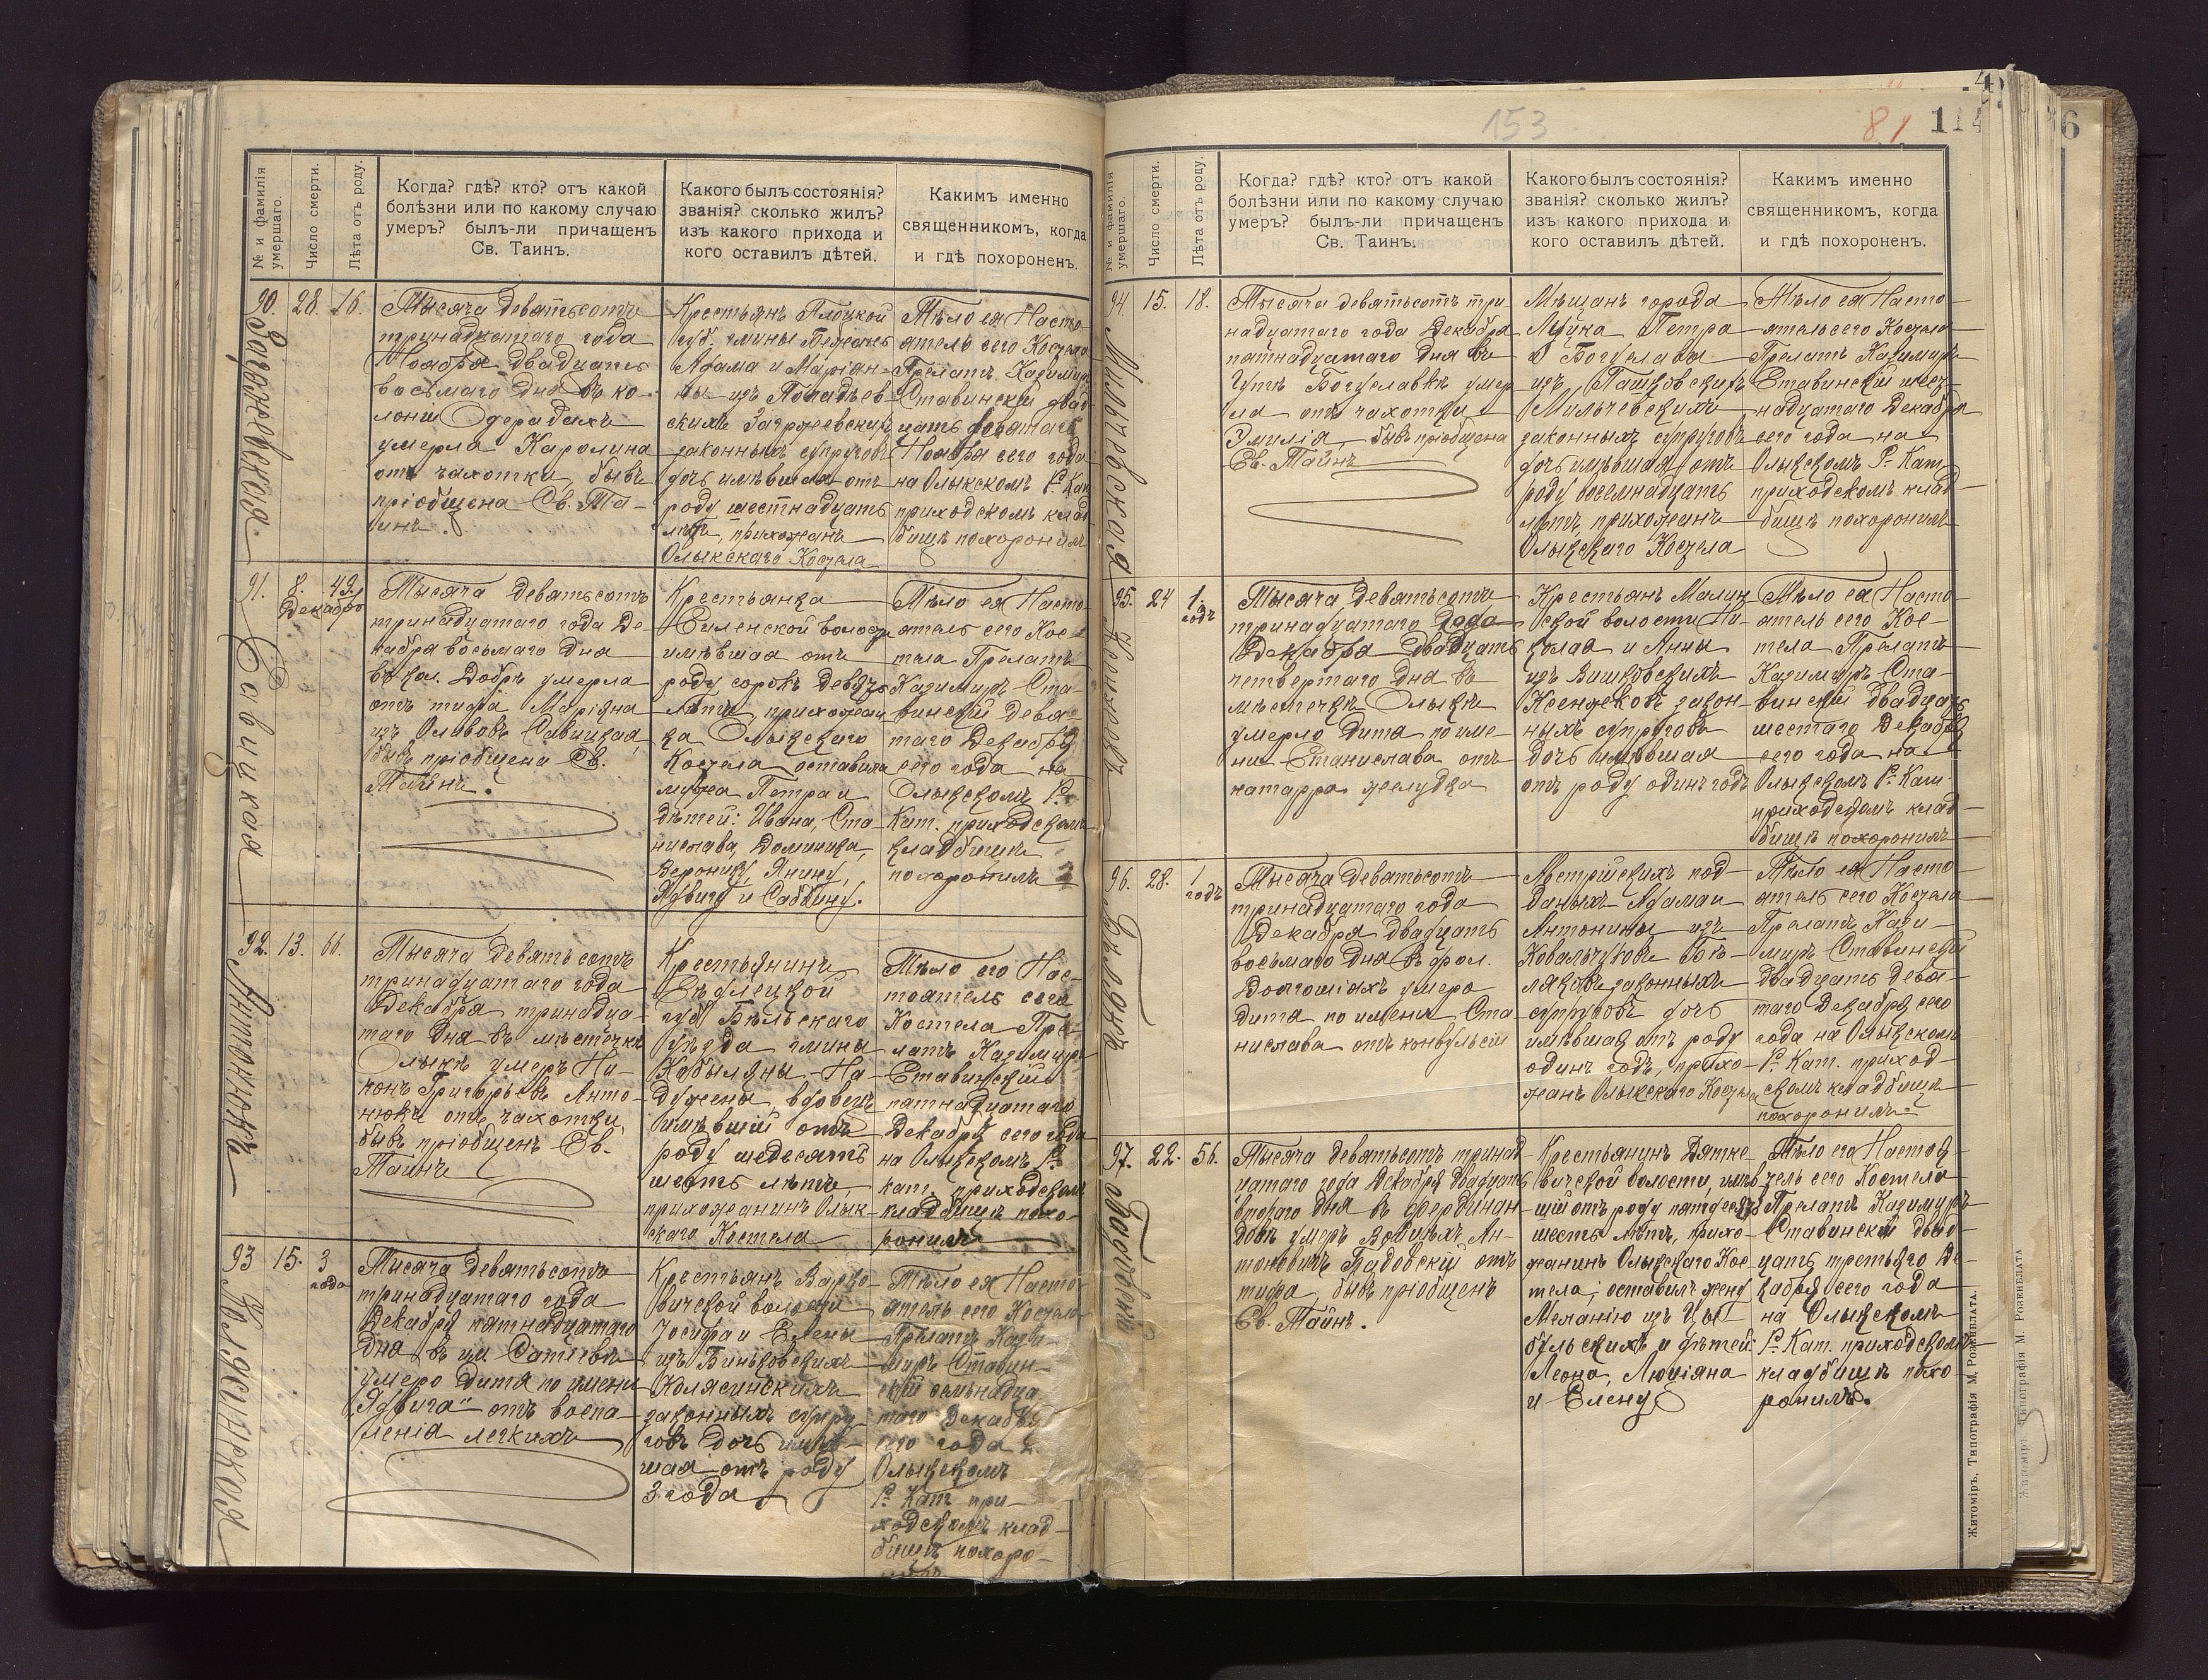 153
81
114
№ и фамилія умершаго.
Число смерти.
Лѣта отъ роду.
Когда? гдѣ? кто? отъ какой
болѣзни или по какому случаю
умеръ? былъ-ли причащенъ
Св. Таинъ.
Какого былъ состоянія?
званія? сколько жилъ?
изъ какого прихода и
кого оставилъ дѣтей.
Какимъ именно
священникомъ, когда
и гдѣ похороненъ.
90.
28.
16.
Тысяча девятьсотъ
тринадцатаго года
Ноября двадцать
восьмаго дня въ ко-
лоніи Одерадахъ
умерла Каролина
отъ чахотки, бывъ
пріобщена Св. Та-
инъ.
Крестьянъ Плоцкой
губ. гмины
Адама и Маріян-
ны изъ
скихъ
законныхъ супруговъ
дочь имѣвшая отъ
роду шестнадцать
лѣтъ, прихожанъ
Олыкскаго Костела
Тѣло ея Насто-
ятель сего Костела
Прелатъ Казимиръ
Ставинскій двад-
цать девятаго
Ноября сего года
на Олыкскомъ Р. Кат.
приходскомъ клад-
бищѣ похоронилъ
91.
Савицкая
8.
Декабря
49.
Тысяча девятьсотъ
тринадцатаго года Де-
кабря восьмаго дня
въ кол. Добрѣ умерла
отъ тифа Маріяна
изъ Савицкая,
бывъ пріобщена Св.
Таинъ.
Крестьянка
волости
имѣвшая отъ
роду сорокъ девять
лѣтъ, прихожан-
ка Олыкскаго
Костела оставила
мужа Петра и
дѣтей: Ивана, Ста-
нислава, Доминика,
Веронику, Янину,
Ядвигу и Сабину.
Тѣло ея Насто-
ятель сего Кос-
тела Прелатъ
Казимиръ Ста-
винскій девя-
таго Декабря
сего года на
Олыкскомъ Р.
Кат. приходскомъ
кладбищѣ
похоронилъ
92.
Антонюкъ
13.
66.
Тысяча девятьсотъ
тринадцатаго года
Декабря тринадца-
таго дня въ мѣстечкѣ
Олыкѣ умеръ Ни-
конъ Григорьевъ Анто-
нюкъ отъ чахотки,
бывъ пріобщенъ Св.
Таинъ
Крестьянинъ
Сѣдлецкой
губ. Бѣльскаго
уѣзда гмины
Кобыляны-На-
дужена, вдовецъ
имѣвшій отъ
роду шедесятъ
шесть лѣтъ,
прихожанинъ Олык-
скаго Костела
Тѣло его Нас-
тоятель сего
Костела Пре-
латъ Казимиръ
Ставинскій
пятнадцатаго
Декабря сего года
на Олыкскомъ Р.
Кат. приходскомъ
кладбищѣ похо-
ронилъ
93
Колясинская
15.
3
года
Тысяча девятьсотъ
тринадцатаго года
Декабря пятнадцатаго
дня въ им.
умерло дитя по имени
„Ядвига“ отъ воспа-
ленія легкихъ
Крестьянъ Варко-
вичской волости
Іосифа и Елены
изъ Биньковскихъ
Колясинскихъ
законныхъ супру-
говъ дочь имѣв-
шая отъ роду
3 года
Тѣло ея Насто-
ятель сего Костела
Прелатъ Кази-
миръ Ставин-
скій семьнадца-
таго Декабря
сего года на
Олыкскомъ
Р. Кат. при-
ходскомъ клад-
бищѣ похоро-
нилъ
№ и фамилія умершаго.
Число смерти.
Лѣта отъ роду.
Когда? гдѣ? кто? отъ какой
болѣзни или по какому случаю
умеръ? былъ-ли причащенъ
Св. Таинъ.
Какого былъ состоянія?
званія? сколько жилъ?
изъ какого прихода и
кого оставилъ дѣтей.
Какимъ именно
священникомъ, когда
и гдѣ похороненъ.
94.
Мильчевская
15.
18.
Тысяча девятьсотъ три-
надцатаго года Декабря
пятнадцатаго дня въ
Гутѣ Богуславкѣ умер-
ла отъ чахотки
Эмилія, бывъ пріобщена
Св. Таинъ
Мѣщанъ города
Луцка Петра
и Богуславы
изъ Пашковскихъ
Мильчевскихъ
законныхъ супруговъ
дочь имѣвшая отъ
роду восемнадцать
лѣтъ, прихожанъ
Олыкскаго Костела
Тѣло ея Насто-
ятель сего Костела
Прелатъ Казимиръ
Ставинскій шест-
надцатаго Декабря
сего года на
Олыкскомъ Р. Кат.
приходскомъ клад-
бищѣ похоронилъ
95.
24
1.
годъ
Тысяча девятьсотъ
тринадцатаго года
Декабря двадцать
четвертаго дня въ
мѣстечкѣ Олыкѣ
умерло дитя по име-
ни Станислава отъ
катарра желудка
Крестьянъ Малин-
ской волости Ни-
колая и Анны
изъ Вишковскихъ
Ксенжековъ закон-
ныхъ супруговъ
дочь имѣвшая
отъ роду одинъ годъ
Тѣло ея Насто-
ятель сего Кос-
тела Прелатъ
Казимиръ Ста-
винскій двадцать
шестаго Декабря
сего года на
Олыкскомъ Р. Кат.
приходскомъ клад-
бищѣ похоронилъ
96.
28.
1
годъ
Тысяча девятьсотъ
тринадцатаго года
Декабря двадцать
восьмаго дня въ фол.
Долгошіяхъ умерло
дитя по имени Ста-
нислава отъ конвульсіи
Австрійскихъ под-
даныхъ Адама и
Антонины изъ
Ковальчуковъ
законныхъ
супруговъ дочь
имѣвшая отъ роду
одинъ годъ, прихо-
жанъ Олыкскаго Костела
Тѣло ея Насто-
ятель сего Костела
Прелатъ Кази-
миръ Ставинскій
двадцать девя-
таго Декабря сего
года на Олыкскомъ
Р. Кат. приход-
скомъ кладбищѣ
похоронилъ
97.
22.
56.
Тысяча девятьсотъ тринад-
цатаго года Декабря двадцать
втораго дня въ Фердинан-
довкѣ умеръ Войцехъ Ан-
тоновичъ отъ
тифа, бывъ пріобщенъ
Св. Таинъ.
Крестьянинъ Дятке-
вичской волости, имѣв-
шій отъ роду пятдесятъ
шесть лѣтъ, прихо-
жанинъ Олыкскаго Кос-
тела; оставилъ жену
Меланію изъ Цы-
бульскихъ и дѣтей:
Леона, Люціяна
и Елену
Тѣло его Настоя-
тель сего Костела
Прелатъ Казимиръ
Ставинскій двад-
цать третьяго Де-
кабря сего года
на Олыкскомъ
Р. Кат. приходскомъ
кладбищѣ похо-
ронилъ.
Житоміръ, Типографія М. Розенблата.
Житоміръ, Типографія М. Розенблата